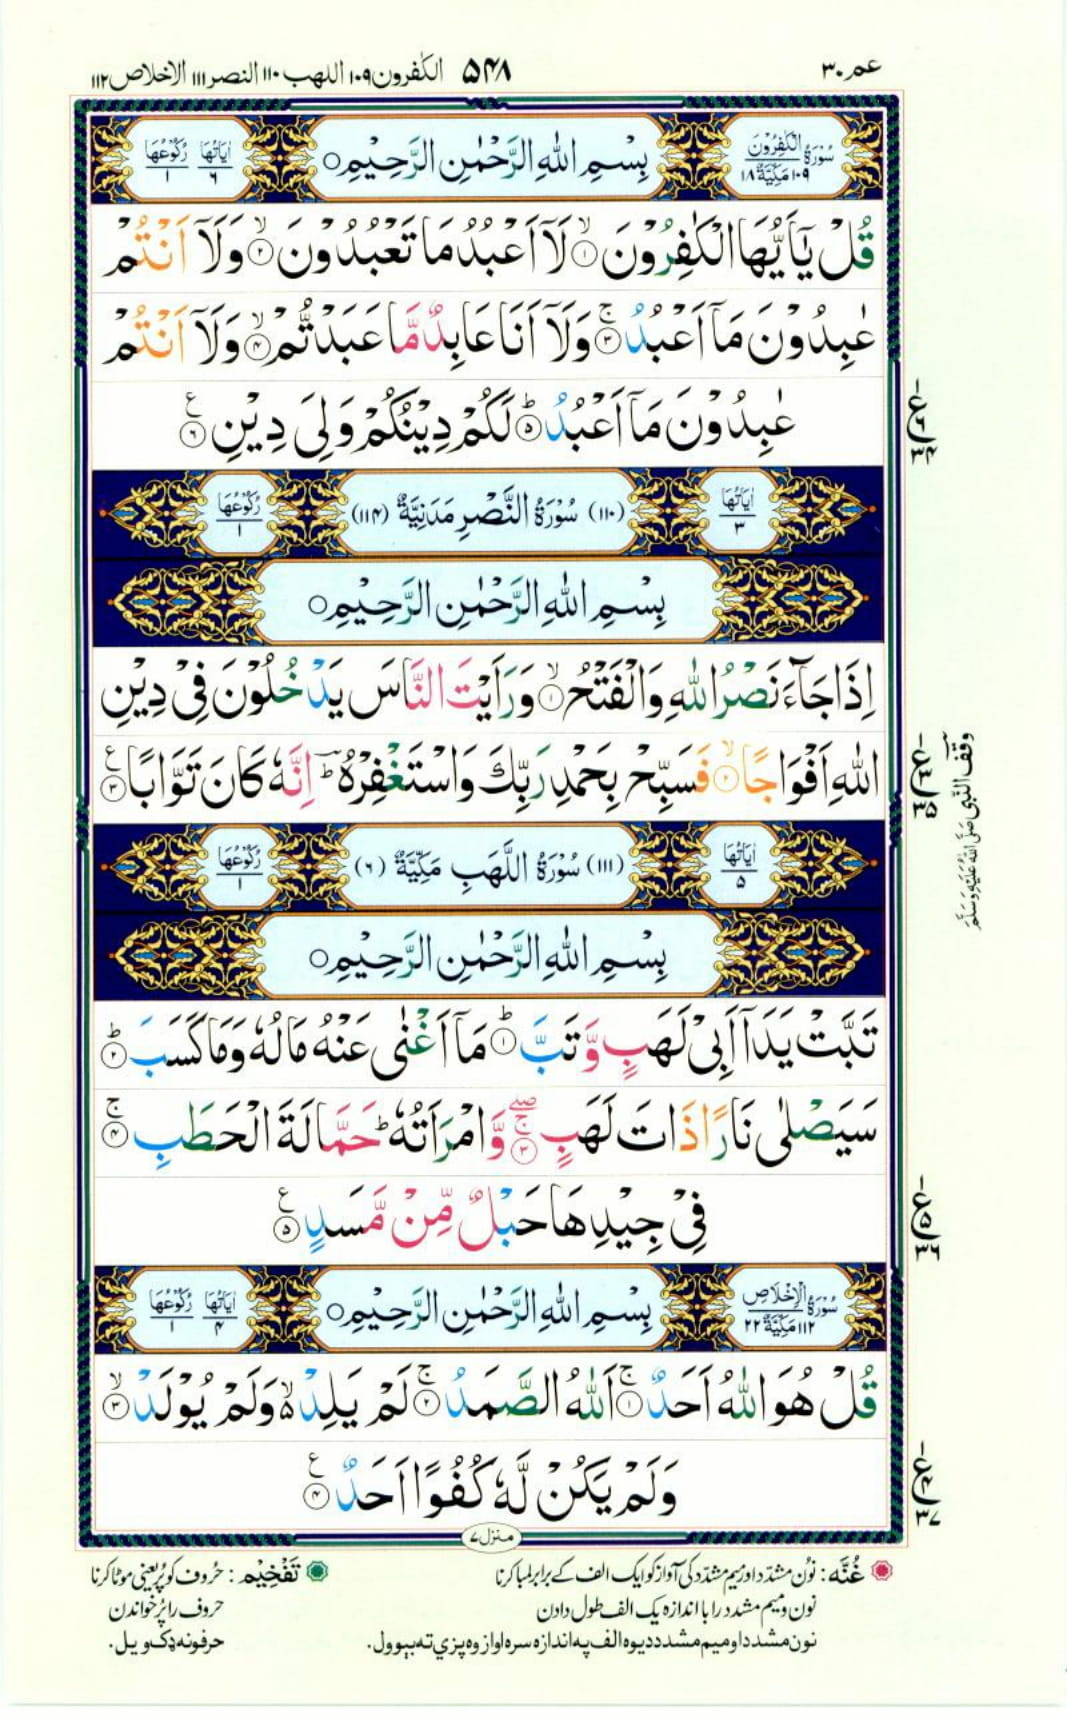 عم ٣٠ ۵۴۸ الکٰفرون ١٠٩ اللهب ١١٠ النصر ١١١ الاخلاص ١١٢
سُوْرَةُ الْكٰفِرُوْنَ ١٠٩ مَكِّيَّةٌ ١٨ بِسْمِ اللّٰهِ الرَّحْمٰنِ الرَّحِيْمِ ○ اٰيَاتُهَا ٦ رُكُوْعُهَا ١
قُلْ يٰۤاَيُّهَا الْكٰفِرُوْنَ ۙ﴿١﴾ لَاۤ اَعْبُدُ مَا تَعْبُدُوْنَ ۙ﴿٢﴾ وَلَاۤ اَنْتُمْ
عٰبِدُوْنَ مَاۤ اَعْبُدُ ۚ﴿٣﴾ وَلَاۤ اَنَا عَابِدٌ مَّا عَبَدْتُّمْ ۙ﴿۴﴾ وَلَاۤ اَنْتُمْ
عٰبِدُوْنَ مَاۤ اَعْبُدُ ؕ﴿۵﴾ لَكُمْ دِيْنُكُمْ وَلِىَ دِيْنِ ﴿٦﴾ ع
ع ٦ ٣۴
اٰيَاتُهَا ٣ (١١٠) سُوْرَةُ النَّصْرِ مَدَنِيَّةٌ (١١۴) رُكُوْعُهَا ١
بِسْمِ اللّٰهِ الرَّحْمٰنِ الرَّحِيْمِ ○
اِذَا جَآءَ نَصْرُ اللّٰهِ وَالْفَتْحُ ۙ﴿١﴾ وَرَاَيْتَ النَّاسَ يَدْخُلُوْنَ فِىْ دِيْنِ
اللّٰهِ اَفْوَاجًا ۙ﴿٢﴾ فَسَبِّحْ بِحَمْدِ رَبِّكَ وَاسْتَغْفِرْهُ ؔؕ اِنَّهٗ كَانَ تَوَّابًا ﴿٣﴾ ع
ع ٣ ٣۵
وقف النبی صَلَّی اللّٰهُ عَلَیْهِ وَسَلَّمَ
اٰيَاتُهَا ۵ (١١١) سُوْرَةُ اللَّهَبِ مَكِّيَّةٌ (٦) رُكُوْعُهَا ١
بِسْمِ اللّٰهِ الرَّحْمٰنِ الرَّحِيْمِ ○
تَبَّتْ يَدَاۤ اَبِىْ لَهَبٍ وَّتَبَّ ؕ﴿١﴾ مَاۤ اَغْنٰى عَنْهُ مَالُهٗ وَمَا كَسَبَ ؕ﴿٢﴾
سَيَصْلٰى نَارًا ذَاتَ لَهَبٍ ۖۚ﴿٣﴾ وَّامْرَاَتُهٗ ؕ حَمَّالَةَ الْحَطَبِ ۚ﴿۴﴾
فِىْ جِيْدِهَا حَبْلٌ مِّنْ مَّسَدٍ ﴿۵﴾ ع
ع ۵ ٣٦
سُوْرَةُ الْاِخْلَاصِ ١١٢ مَكِّيَّةٌ ٢٢ بِسْمِ اللّٰهِ الرَّحْمٰنِ الرَّحِيْمِ ○ اٰيَاتُهَا ۴ رُكُوْعُهَا ١
قُلْ هُوَ اللّٰهُ اَحَدٌ ۚ﴿١﴾ اَللّٰهُ الصَّمَدُ ۚ﴿٢﴾ لَمْ يَلِدْ ۙ۬ وَلَمْ يُوْلَدْ ۙ﴿٣﴾
وَلَمْ يَكُنْ لَّهٗ كُفُوًا اَحَدٌ ﴿۴﴾ ع
ع ۴ ٣٧
منزل ٧
غُنَّه: نُون مشدّد اور میم مشدّد کی آواز کو ایک الف کے برابر لمبا کرنا
نون و میم مشدد را با اندازه یک الف طول دادن
نون مشدد او میم مشدد دیوه الف په اندازه سره اواز وه پزې ته بېوول.
تَفْخِیْم: حُروف کو پُر یعنی موٹا کرنا
حروف را پُر خواندن
حرفونه ډک ویل.